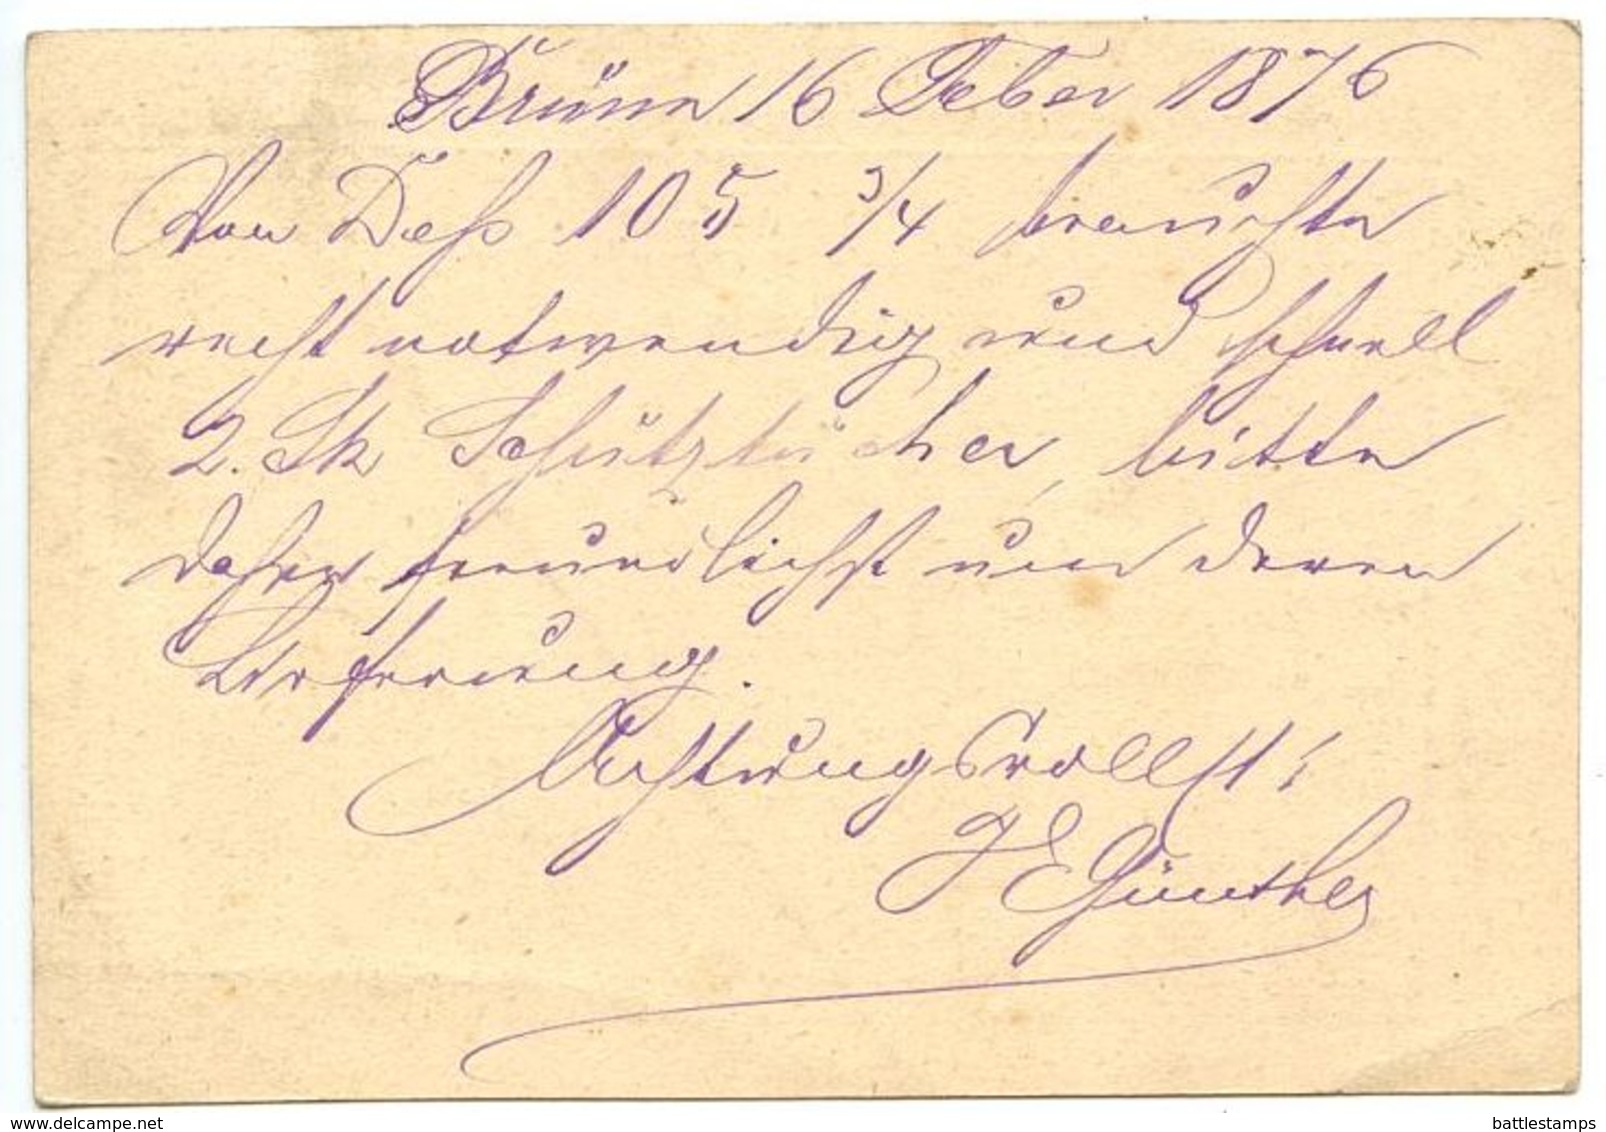 Brünn 16 Feber 1876
Von Dess 105 3/4 brauchte
recht notwendig und schnell
2. Stk Schütztücher, bitte
daher freundlichst um deren
Lieferung.
Achtungsvollst
J E Günther
delcampe.net
battlestamps